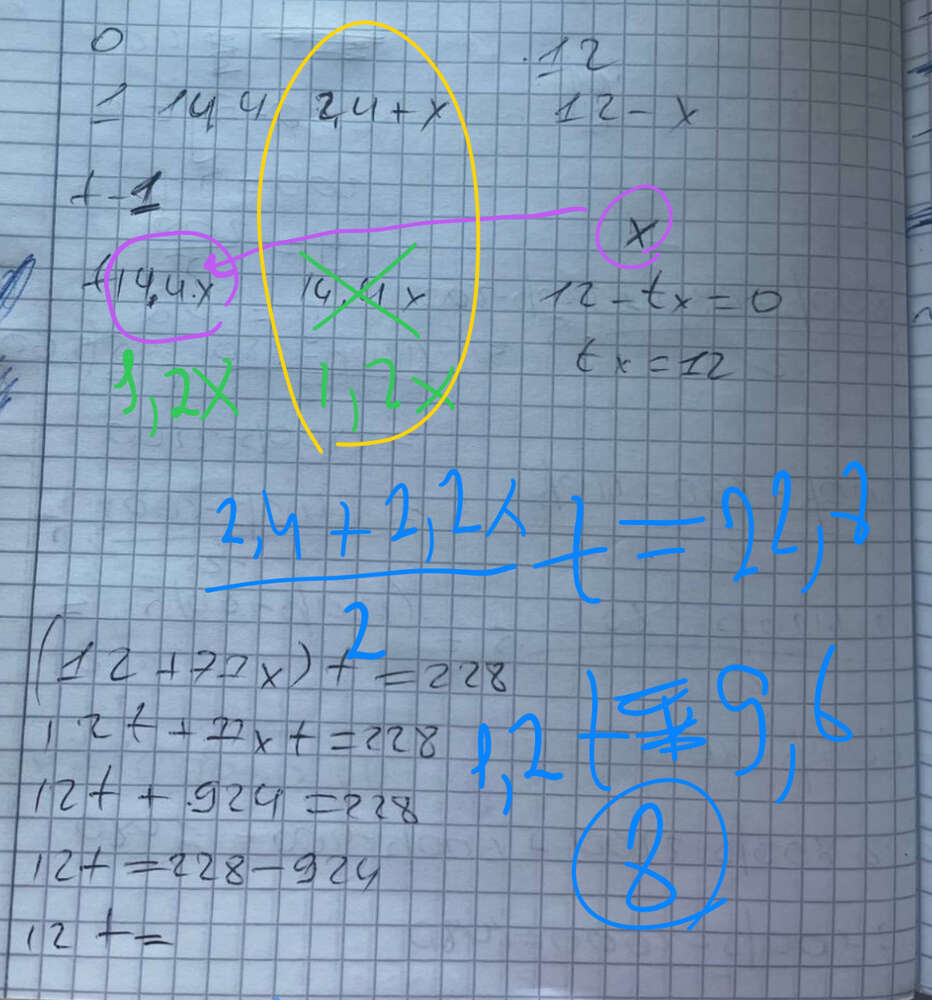 0 12
1 14,4 2,4+x 12-x
t-1 x
t 14,4.x 14,4x 12-tx=0
1,2x 1,2x tx=12
2,4+2,2x t=22,8
2
(12+77x)t=228
12t+77xt=228 1,2t=9,6
12t+924=228
12t=228-924 8
12t=